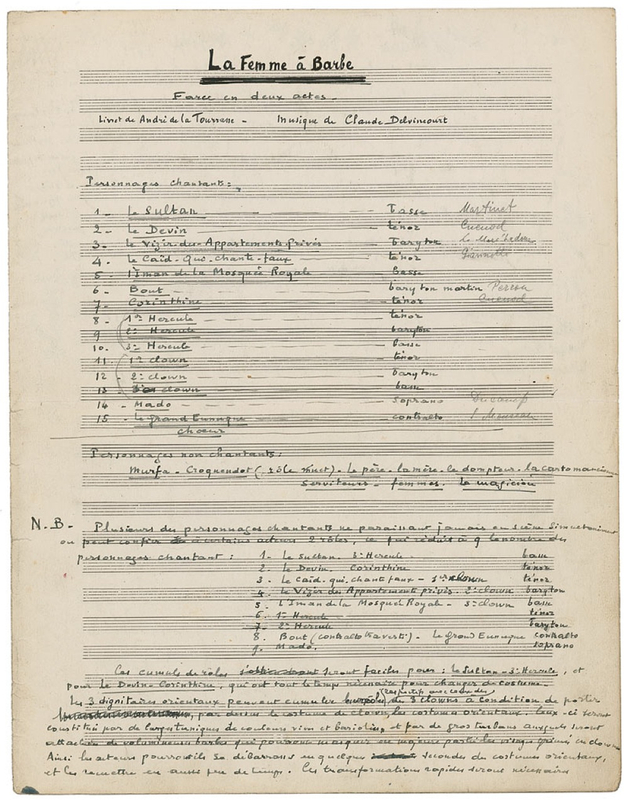 La Femme à Barbe
Farce en deux actes -
Livret de André de la Tourrasse - Musique de Claude Delvincourt
Personnages chantants :
1 - Le Sultan - Basse Martinet
2 - Le Devin - ténor Cuenod
3 - Le Vizir-des-Appartements-Privés Baryton
4 - Le Caïd-Qui-chante-faux - ténor
5 - l'Iman de la Mosquée Royale - basse
6 - Bout - baryton martin
7 - Corinthine - ténor Cuenod
8 - 1er Hercule - ténor
9 2e Hercule - baryton
10 - 3e Hercule - basse
11 - 1er clown - ténor
12 - 2e clown - baryton
13 3e clown - basse
14 - Mado - soprano
15 - Le Grand Eunuque - contralto
choeur
Personnages non chantants :
Murfa - Croquendot (rôle muet) - le père - la mère - le dompteur - la cartomancienne
Serviteurs - femmes - le magicien
N.B - Plusieurs des personnages chantants ne paraissant jamais en scène simultanément
on peut confier à certains acteurs 2 rôles, ce qui réduit à 9 le nombre des
personnages chantant : 1 - Le Sultan. 3e Hercule - basse
2 - Le Devin. Corinthine ténor
3 - Le Caïd-qui-chante faux - 1er clown ténor
4 - Le Vizir des Appartements privés. 2e clown baryton
5 - L'Iman de la Mosquée Royale - 3e clown basse
6 - 1er Hercule ténor
7 - 2e Hercule baryton
8. Bout (contralto travesti) - Le Grand Eunuque contralto
9. Mado. soprano
Ces cumuls de rôles seront faciles pour : le Sultan - 3e Hercule, et
pour le Devin-Corinthine, qui ont tout le temps nécessaire pour changer de costume.
Les 3 dignitaires orientaux peuvent cumuler les 3 clowns à condition de porter
par dessus le costume de clown, le costume oriental. Ceux-ci seront
constitués par de larges tuniques de couleurs vives et bariolées, et par de gros turbans auxquels seront
attachées de volumineuses barbes qui pourront masquer en majeure partie les visages grimés en clowns
Ainsi les acteurs pourront se débarrasser en quelques secondes des costumes orientaux,
et les remettre en aussi peu de temps. Ces transformations rapides seront nécessaires